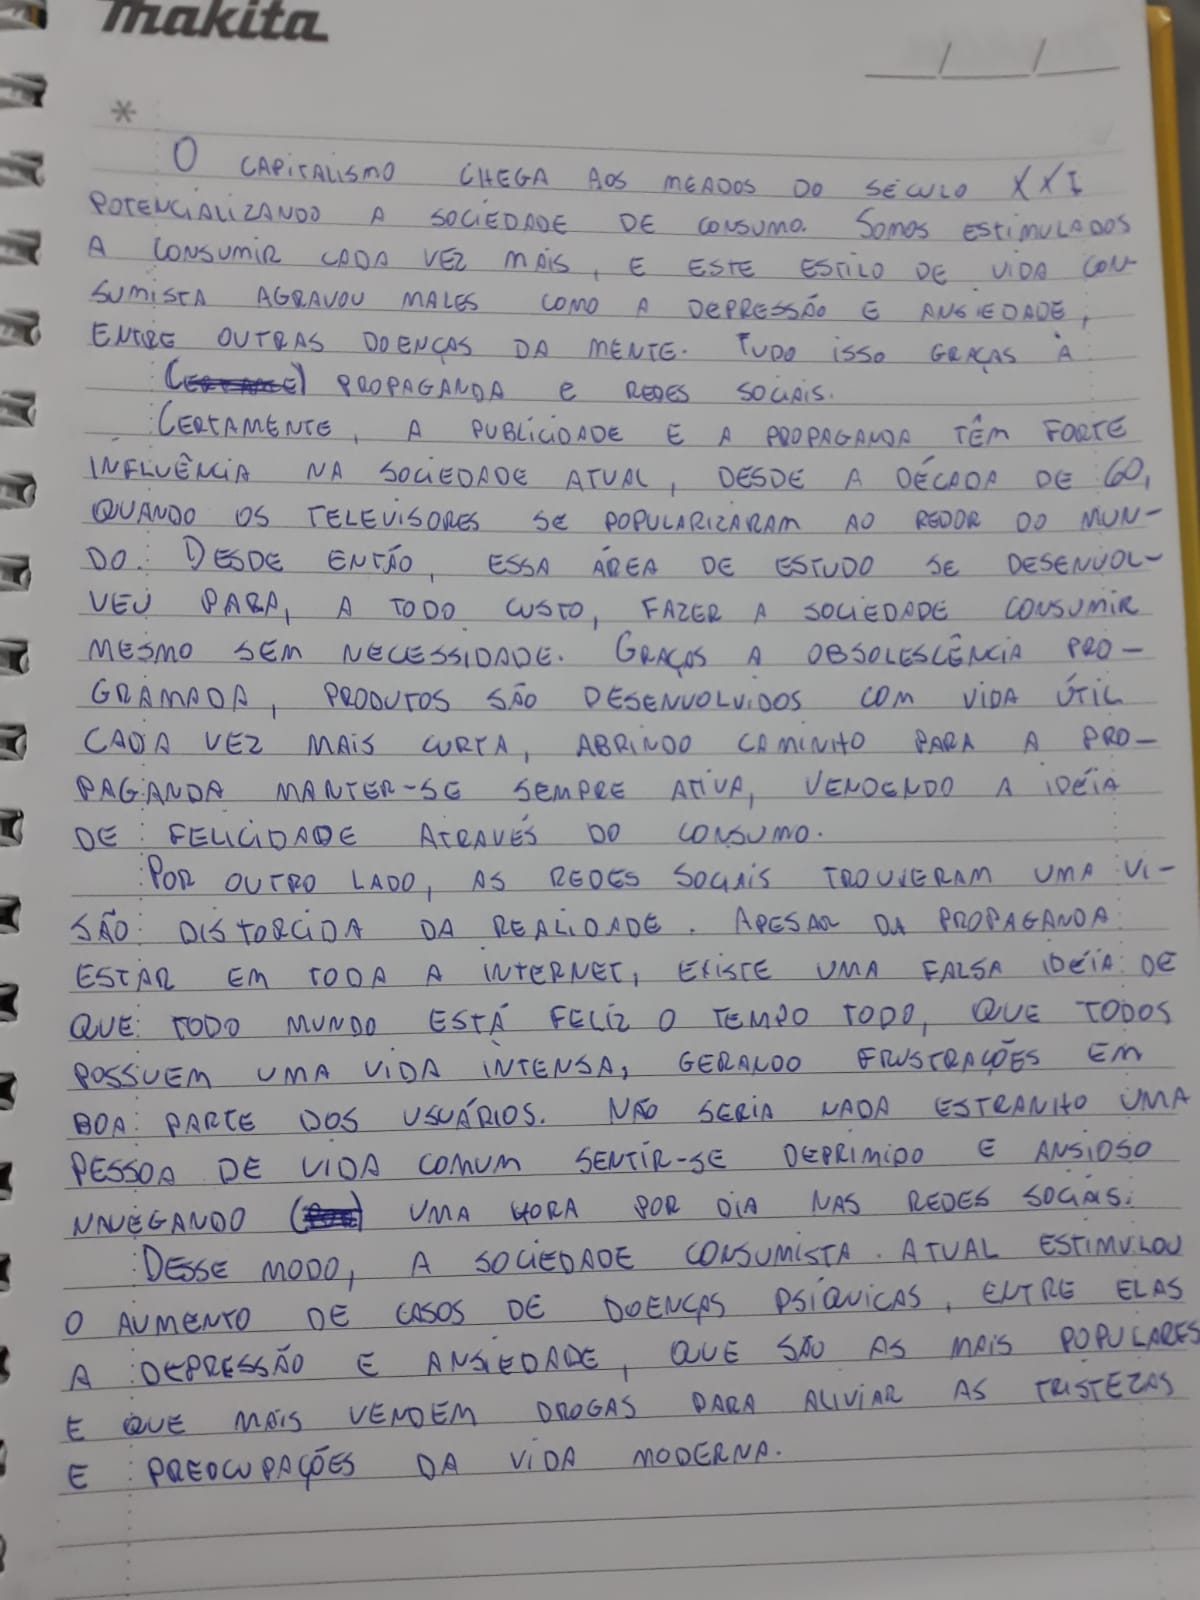 makita
__/__/__
*
O CAPITALISMO CHEGA AOS MEADOS DO SÉCULO XXI
POTENCIALIZANDO A SOCIEDADE DE CONSUMO. SOMOS ESTIMULADOS
A CONSUMIR CADA VEZ MAIS, E ESTE ESTILO DE VIDA CON-
SUMISTA AGRAVOU MALES COMO A DEPRESSÃO E ANSIEDADE,
ENTRE OUTRAS DOENÇAS DA MENTE. TUDO ISSO GRAÇAS À
PROPAGANDA E REDES SOCIAIS.
CERTAMENTE, A PUBLICIDADE E A PROPAGANDA TÊM FORTE
INFLUÊNCIA NA SOCIEDADE ATUAL, DESDE A DÉCADA DE 60,
QUANDO OS TELEVISORES SE POPULARIZARAM AO REDOR DO MUN-
DO. DESDE ENTÃO, ESSA ÁREA DE ESTUDO SE DESENVOL-
VEU PARA, A TODO CUSTO, FAZER A SOCIEDADE CONSUMIR
MESMO SEM NECESSIDADE. GRAÇAS A OBSOLESCÊNCIA PRO-
GRAMADA, PRODUTOS SÃO DESENVOLVIDOS COM VIDA ÚTIL
CADA VEZ MAIS CURTA, ABRINDO CAMINHO PARA A PRO-
PAGANDA MANTER-SE SEMPRE ATIVA, VENDENDO A IDÉIA
DE FELICIDADE ATRAVÉS DO CONSUMO.
POR OUTRO LADO, AS REDES SOCIAIS TROUXERAM UMA VI-
SÃO DISTORCIDA DA REALIDADE. APESAR DA PROPAGANDA
ESTAR EM TODA A INTERNET, EXISTE UMA FALSA IDÉIA DE
QUE TODO MUNDO ESTÁ FELIZ O TEMPO TODO, QUE TODOS
POSSUEM UMA VIDA INTENSA, GERALDO FRUSTRAÇÕES EM
BOA PARTE DOS USUÁRIOS. NÃO SERIA NADA ESTRANHO UMA
PESSOA DE VIDA COMUM SENTIR-SE DEPRIMIDO E ANSIOSO
NAVEGANDO UMA HORA POR DIA NAS REDES SOCIAIS.
DESSE MODO, A SOCIEDADE CONSUMISTA ATUAL ESTIMULOU
O AUMENTO DE CASOS DE DOENÇAS PSÍQUICAS, ENTRE ELAS
A DEPRESSÃO E ANSIEDADE, QUE SÃO AS MAIS POPULARES
E QUE MAIS VENDEM DROGAS PARA ALIVIAR AS TRISTEZAS
E PREOCUPAÇÕES DA VIDA MODERNA.